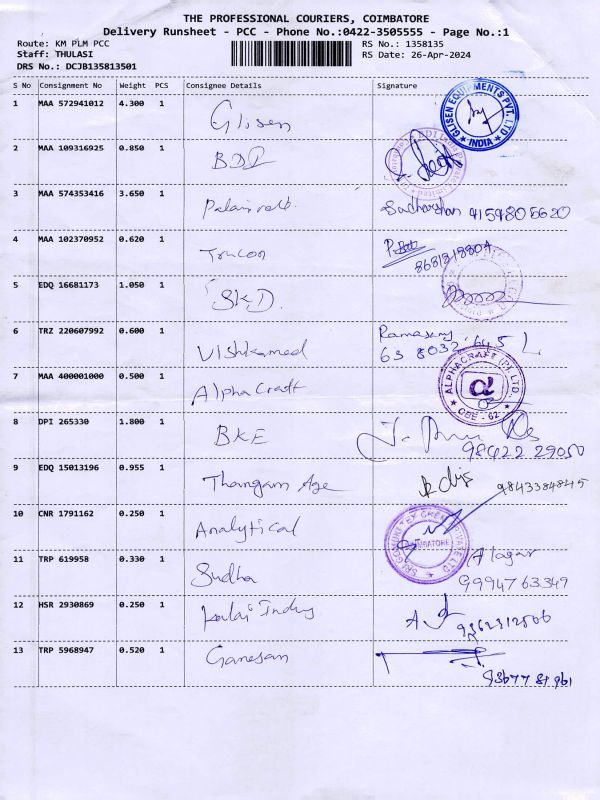 THE PROFESSIONAL COURIERS, COIMBATORE
Delivery Runsheet - PCC - Phone No.:0422-3505555 - Page No.:1
Route: KM PLM PCC RS No.: 1358135
Staff: THULASI RS Date: 26-Apr-2024
DRS No.: DCJB135813501
S No Consignment No Weight PCS Consignee Details Signature
1 MAA 572941012 4.300 1 Glisen GLISEN EQUIPMENTS PVT. LTD INDIA
2 MAA 109316925 0.850 1 BDI
3 MAA 574353416 3.650 1 Sudharshan 9159805620
4 MAA 102370952 0.620 1 Trucon
5 EDQ 16681173 1.050 1 SKD.
6 TRZ 220607992 0.600 1 Ramasamy
63 8032 645
7 MAA 400001000 0.500 1 AlphaCraft ALPHACRAFT (P) LTD. CBE - 62
8 DPI 265330 1.800 1 BKE 98422 29050
9 EDQ 15013196 0.955 1 Thangam Age 9843384845
10 CNR 1791162 0.250 1 Analytical COIMBATORE
11 TRP 619958 0.330 1 Sudha Alagar
9994763349
12 HSR 2930869 0.250 1 Kalai Indus 9362312506
13 TRP 5968947 0.520 1 Ganesan